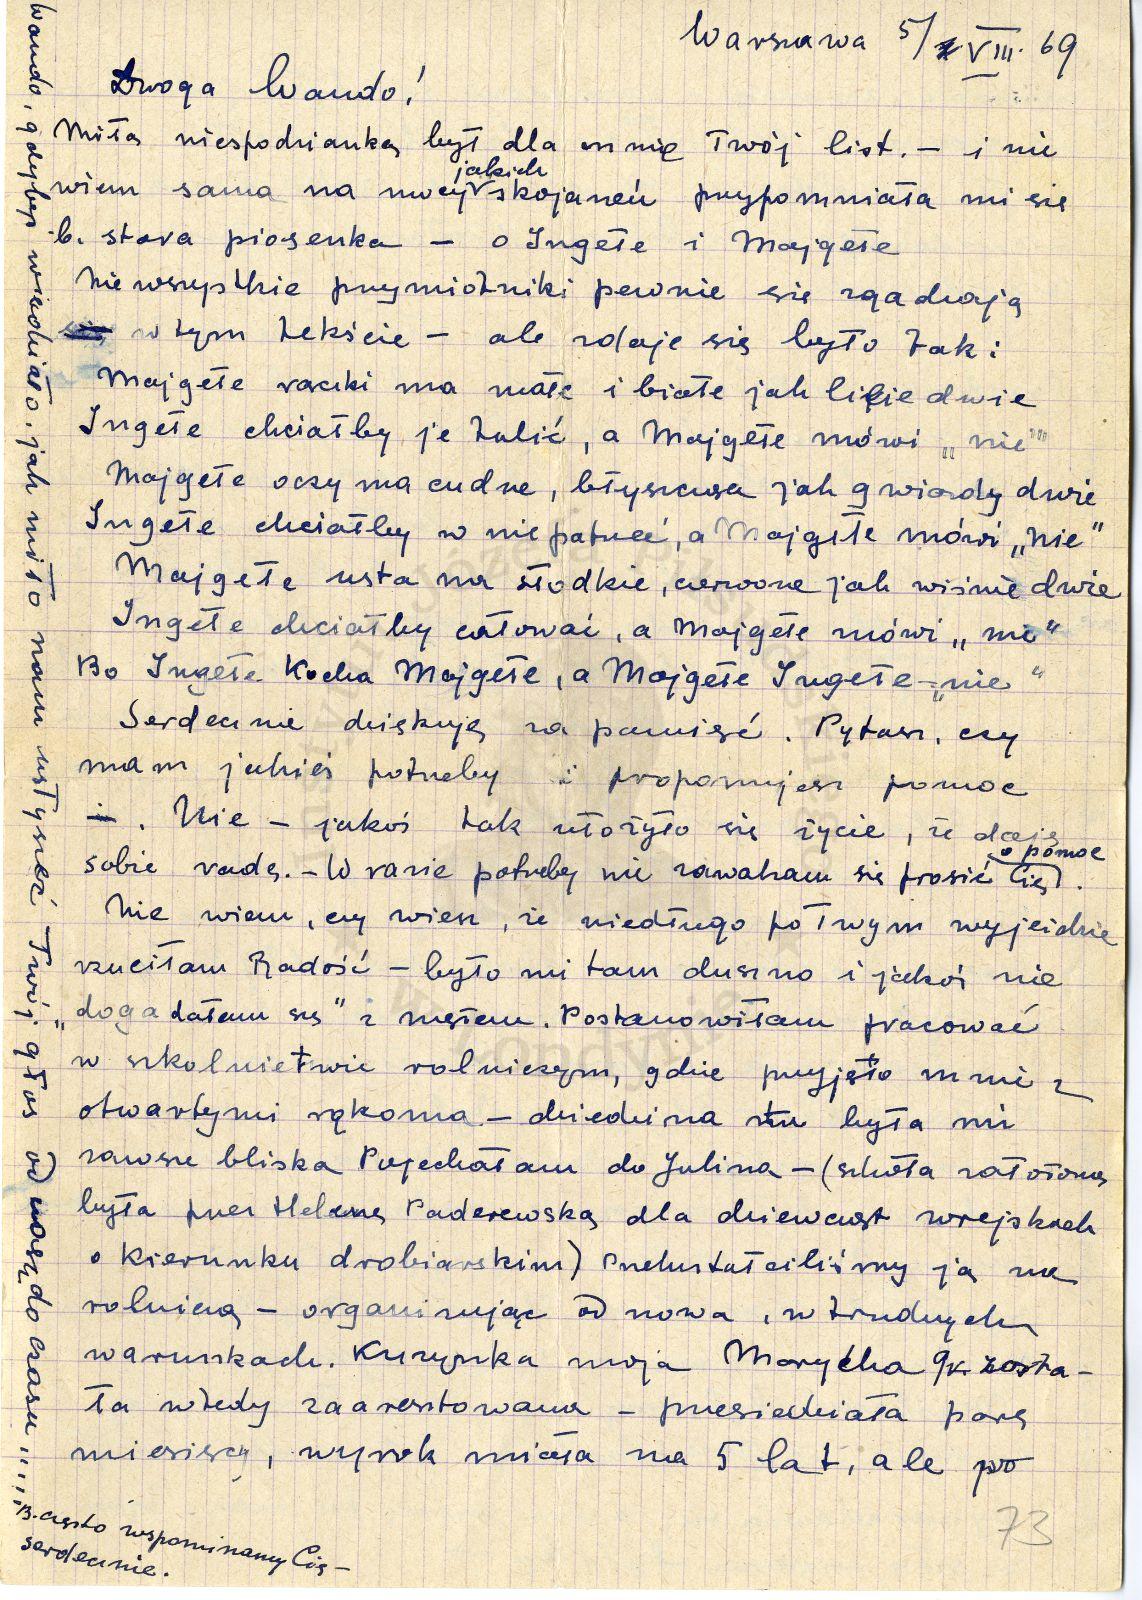 Warszawa 5/VIII. 69
Droga Wando!
Miłą niespodzianką był dla mnie Twój list. – i nie
wiem sama na mocy jakich skojarzeń przypomniała mi się
b. stara piosenka – o Ingele i Majgele
Nie wszystkie przymiotniki pewnie się zgadzają
w tym tekście – ale zdaje się było tak:
Majgele rączki ma małe i białe jak lilie dwie
Ingele chciałby je tulić, a Majgele mówi „nie"
Majgele oczy ma cudne, błyszczą jak gwiazdy dwie
Ingele chciałby w nie patrzeć, a Majgele mówi „nie"
Majgele usta ma słodkie, czerwone jak wiśnie dwie
Ingele chciałby całować, a Majgele mówi „nie"
Bo Ingele Kocha Majgele, a Majgele Ingele – „nie"
Serdecznie dziękuję za pamięć. Pytasz, czy
mam jakieś potrzeby i proponujesz pomoc
. Nie – jakoś tak ułożyło się życie, że daję
sobie radę. – W razie potrzeby nie zawaham się prosić Cię o pomoc.
Nie wiem, czy wiesz, że niedługo po Twym wyjeździe
rzuciłam Radość – było mi tam duszno i jakoś nie
„dogadałam się" z mężem. Postanowiłam pracować
w szkolnictwie rolniczym, gdzie przyjęto mnie z
otwartymi rękoma – dziedzina ta była mi
zawsze bliska Pojechałam do Julina – (szkoła założona
była przez Helenę Paderewską dla dziewcząt wiejskich
o Kierunku drobiarskim) Przekształciliśmy ją na
rolniczą – organizując od nowa, w trudnych
warunkach. Kuzynka moja Marycha zosta-
ła wtedy zaaresztowana – przesiedziała parę
miesięcy, wyrok miała na 5 lat, ale po
73
Wando, gdybyś wiedziała, jak miło nam usłyszeć Twój głos od czasu do czasu .....
B. często wspominamy Cię –
serdecznie.